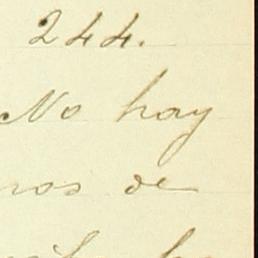 244.
No hay
nos de